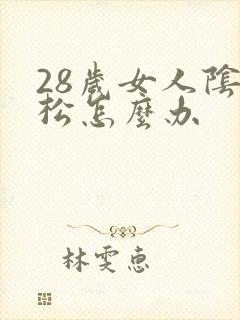 28歲女人陰
松怎麼办
林雯惠